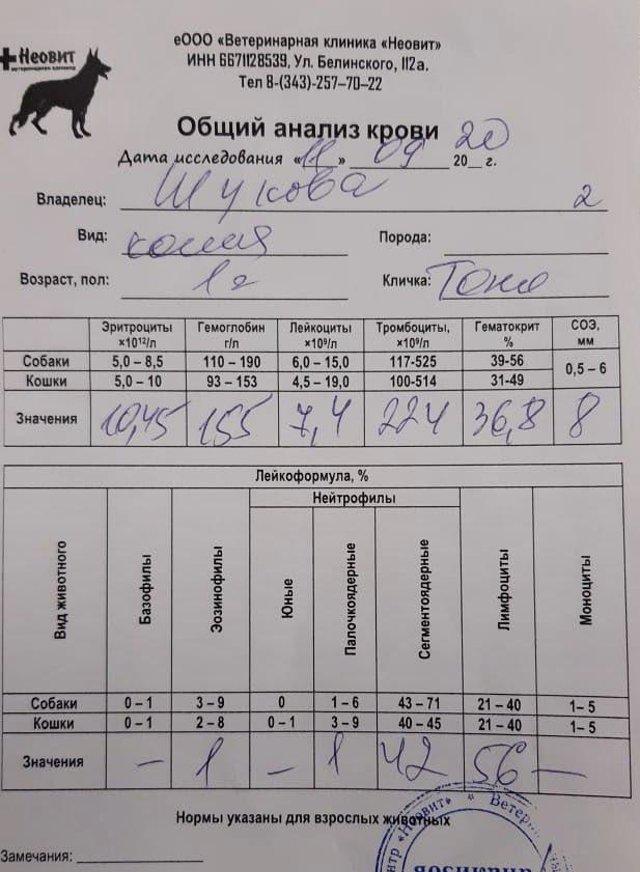 Неовит
ветеринарная клиника
еООО «Ветеринарная клиника «Неовит»
ИНН 6671128539, Ул. Белинского, 112а.
Тел 8-(343)-257-70-22
Общий анализ крови
Дата исследования «11» 09 20 20__ г.
Владелец: Шукова 2
Вид: кошка Порода:
Возраст, пол: 1г Кличка:
Эритроциты ×10¹²/л Гемоглобин г/л Лейкоциты ×10⁹/л Тромбоциты, ×10⁹/л Гематокрит % СОЭ, мм
Собаки 5,0 – 8,5 110 – 190 6,0 – 15,0 117-525 39-56 0,5 – 6
Кошки 5,0 – 10 93 – 153 4,5 – 19,0 100-514 31-49
Значения 10,45 155 7,4 224 36,8 8
Лейкоформула, %
Нейтрофилы
Вид животного Базофилы Эозинофилы Юные Палочкоядерные Сегментоядерные Лимфоциты Моноциты
Собаки 0 – 1 3 – 9 0 1 – 6 43 – 71 21 – 40 1– 5
Кошки 0 – 1 2 – 8 0 – 1 3 – 9 40 – 45 21 – 40 1– 5
Значения – 1 – 1 42 56 —
Нормы указаны для взрослых животных
Замечания:
«Неовит» * Ветер